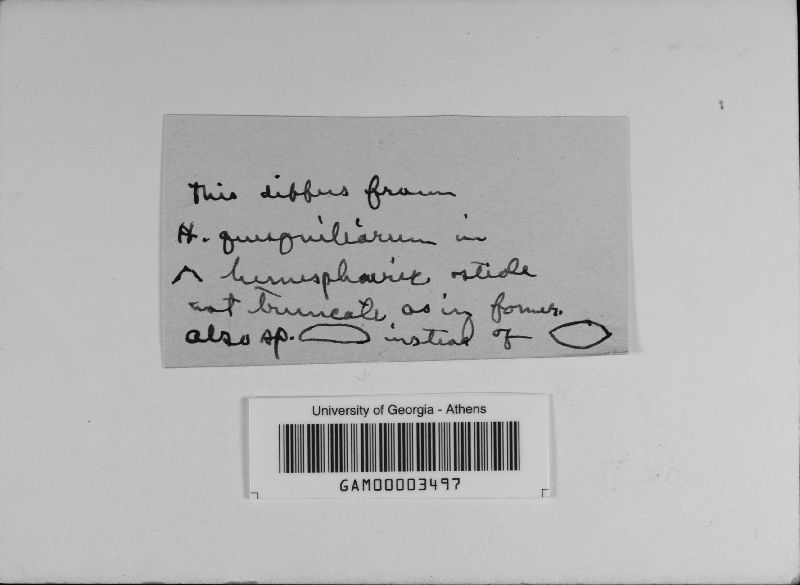 This differs from
H. quisquiliarum in
hemisphaeric ostiole
not truncate as in former.
also sp. instead of
University of Georgia - Athens
GAM00003497